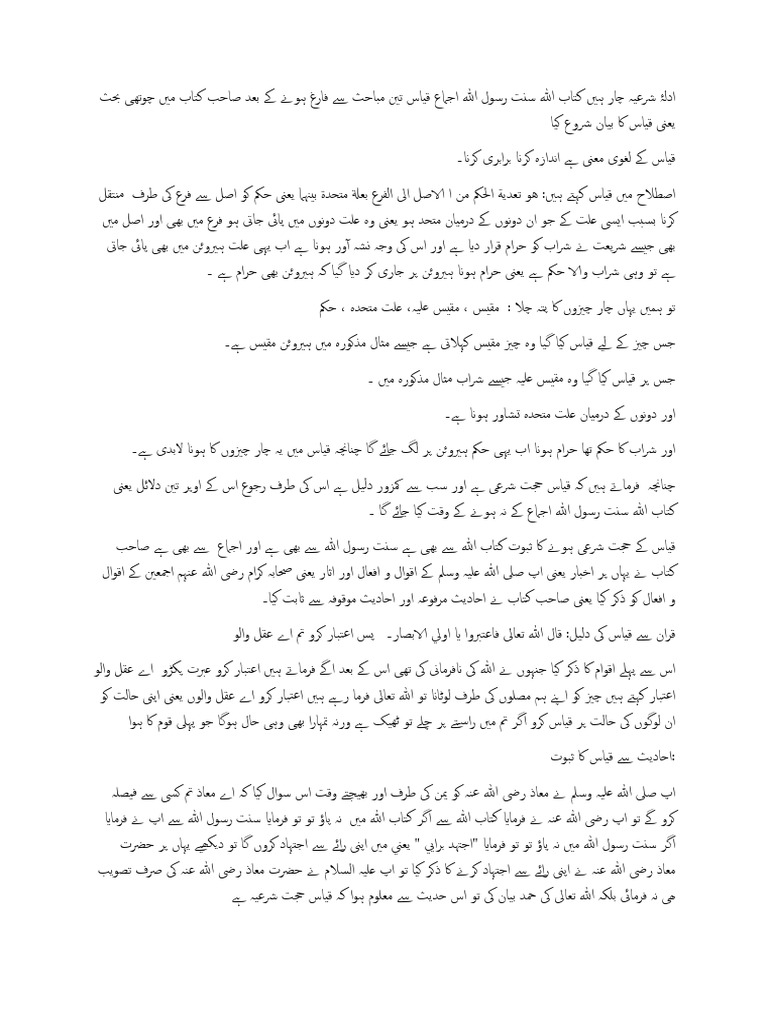 ادلۂ شرعیہ چار ہیں کتاب اللہ سنت رسول اللہ اجماع قیاس تین مباحث سے فارغ ہونے کے بعد صاحب کتاب میں چوتھی بحث
یعنی قیاس کا بیان شروع کیا
قیاس کے لغوی معنی ہے اندازہ کرنا برابری کرنا۔
اصطلاح میں قیاس کہتے ہیں: هو تعدية الحكم من ا الاصل الى الفرع بعلة متحدة بينهما یعنی حکم کو اصل سے فرع کی طرف منتقل
کرنا بسبب ایسی علت کے جو ان دونوں کے درمیان متحد ہو یعنی وہ علت دونوں میں پائی جاتی ہو فرع میں بھی اور اصل میں
بھی جیسے شریعت نے شراب کو حرام قرار دیا ہے اور اس کی وجہ نشہ آور ہونا ہے اب یہی علت ہیروئن میں بھی پائی جاتی
ہے تو وہی شراب والا حکم ہے یعنی حرام ہونا ہیروئن پر جاری کر دیا گیا کہ ہیروئن بھی حرام ہے ۔
تو ہمیں یہاں چار چیزوں کا پتہ چلا : مقیس ، مقیس علیہ، علت متحدہ ، حکم
جس چیز کے لیے قیاس کیا گیا وہ چیز مقیس کہلاتی ہے جیسے مثال مذکورہ میں ہیروئن مقیس ہے۔
جس پر قیاس کیا گیا وہ مقیس علیہ جیسے شراب مثال مذکورہ میں ۔
اور دونوں کے درمیان علت متحدہ تشاور ہونا ہے۔
اور شراب کا حکم تھا حرام ہونا اب یہی حکم ہیروئن پر لگ جائے گا چنانچہ قیاس میں یہ چار چیزوں کا ہونا لابدی ہے۔
چنانچہ فرماتے ہیں کہ قیاس حجت شرعی ہے اور سب سے کمزور دلیل ہے اس کی طرف رجوع اس کے اوپر تین دلائل یعنی
کتاب اللہ سنت رسول اللہ اجماع کے نہ ہونے کے وقت کیا جائے گا ۔
قیاس کے حجت شرعی ہونے کا ثبوت کتاب اللہ سے بھی ہے سنت رسول اللہ سے بھی ہے اور اجماع سے بھی ہے صاحب
کتاب نے یہاں پر اخبار یعنی اپ صلی اللہ علیہ وسلم کے اقوال و افعال اور اثار یعنی صحابہ کرام رضی اللہ عنہم اجمعین کے اقوال
و افعال کو ذکر کیا یعنی صاحب کتاب نے احادیث مرفوعہ اور احادیث موقوفہ سے ثابت کیا۔
قران سے قیاس کی دلیل: قال اللہ تعالی فاعتبروا يا اولي الابصار۔ پس اعتبار کرو تم اے عقل والو
اس سے پہلے اقوام کا ذکر کیا جنہوں نے اللہ کی نافرمانی کی تھی اس کے بعد اگے فرماتے ہیں اعتبار کرو عبرت پکڑو اے عقل والو
اعتبار کہتے ہیں چیز کو اپنے ہم مصلوں کی طرف لوٹانا تو اللہ تعالی فرما رہے ہیں اعتبار کرو اے عقل والوں یعنی اپنی حالت کو
ان لوگوں کی حالت پر قیاس کرو اگر تم میں راستے پر چلے تو ٹھیک ہے ورنہ تمہارا بھی وہی حال ہوگا جو پہلی قوم کا ہوا
:احادیث سے قیاس کا ثبوت
اپ صلی اللہ علیہ وسلم نے معاذ رضی اللہ عنہ کو یمن کی طرف اور بھیجتے وقت اس سوال کیا کہ اے معاذ تم کسی سے فیصلہ
کرو گے تو اپ رضی اللہ عنہ نے فرمایا کتاب اللہ سے اگر کتاب اللہ میں نہ پاؤ تو تو فرمایا سنت رسول اللہ سے اپ نے فرمایا
اگر سنت رسول اللہ میں نہ پاؤ تو تو فرمایا "اجتہد برايي " يعني میں اپنی رائے سے اجتہاد کروں گا تو دیکھیے یہاں پر حضرت
معاذ رضی اللہ عنہ نے اپنی رائے سے اجتہاد کرنے کا ذکر کیا تو اپ علیہ السلام نے حضرت معاذ رضی اللہ عنہ کی صرف تصویب
ھی نہ فرمائی بلکہ اللہ تعالی کی حمد بیان کی تو اس حدیث سے معلوم ہوا کہ قیاس حجت شرعیہ ہے